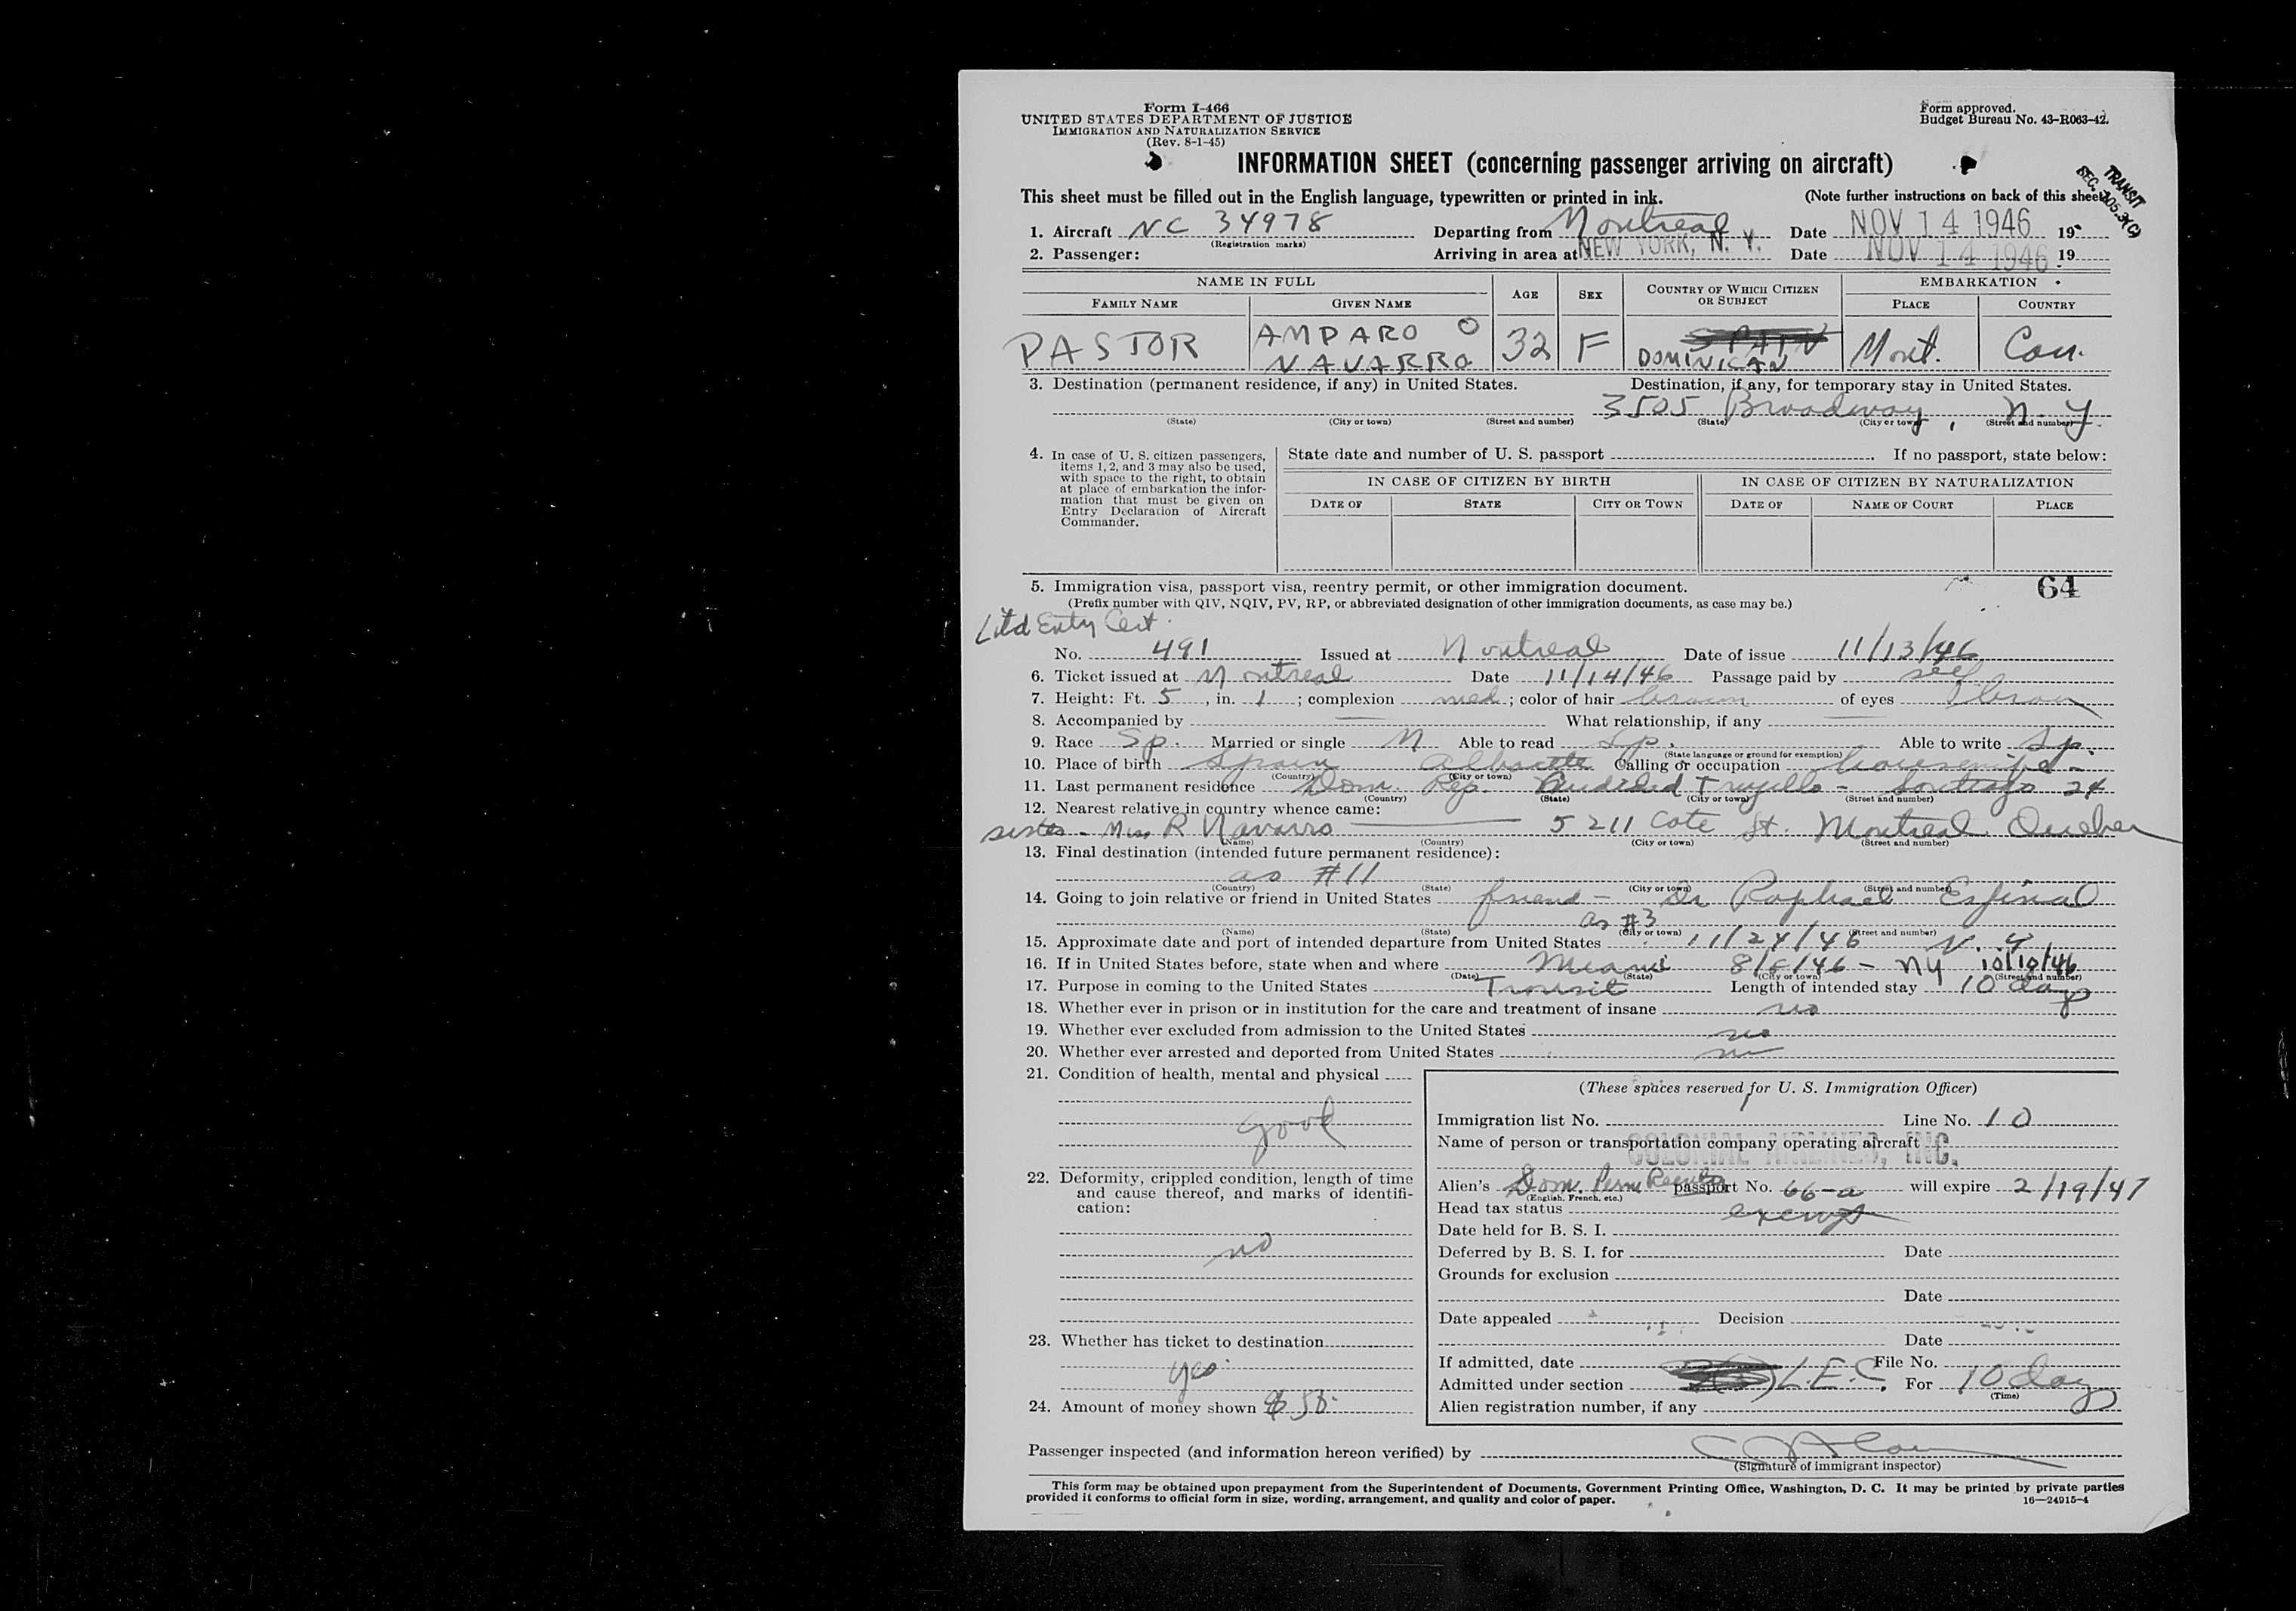 Form I-466
UNITED STATES DEPARTMENT OF JUSTICE
IMMIGRATION AND NATURALIZATION SERVICE
(Rev. 8-1-45)
Form approved.
Budget Bureau No. 43-R063-42.
INFORMATION SHEET (concerning passenger arriving on aircraft)
TRANSIT
SEC. 305.3(C)
This sheet must be filled out in the English language, typewritten or printed in ink. (Note further instructions on back of this sheet
1. Aircraft NC 34978 Departing from Montreal Date NOV 14 1946 19
(Registration marks)
2. Passenger: Arriving in area at NEW YORK, N. Y. Date NOV 14 1946 19
NAME IN FULL AGE SEX COUNTRY OF WHICH CITIZEN OR SUBJECT EMBARKATION
FAMILY NAME GIVEN NAME PLACE COUNTRY
PASTOR AMPARO O NAVARRO 32 F SPAIN DOMINICAN Mont. Can.
3. Destination (permanent residence, if any) in United States. Destination, if any, for temporary stay in United States.
3505 Broadway, N.Y.
(State) (City or town) (Street and number) (State) (City or town) (Street and number)
4. In case of U. S. citizen passengers, items 1, 2, and 3 may also be used, with space to the right, to obtain at place of embarkation the information that must be given on Entry Declaration of Aircraft Commander.
State date and number of U. S. passport If no passport, state below:
IN CASE OF CITIZEN BY BIRTH IN CASE OF CITIZEN BY NATURALIZATION
DATE OF STATE CITY OR TOWN DATE OF NAME OF COURT PLACE
5. Immigration visa, passport visa, reentry permit, or other immigration document. 64
(Prefix number with QIV, NQIV, PV, RP, or abbreviated designation of other immigration documents, as case may be.)
Ltd Entry Cert.
No. 491 Issued at Montreal Date of issue 11/13/46
6. Ticket issued at Montreal Date 11/14/46 Passage paid by self
7. Height: Ft. 5, in. 1; complexion med; color of hair brown of eyes brown
8. Accompanied by — What relationship, if any —
9. Race Sp. Married or single M Able to read Sp. Able to write Sp.
(State language or ground for exemption)
10. Place of birth Spain Albacete Calling or occupation housewife
(Country) (City or town)
11. Last permanent residence Dom. Rep. Ciudad Trujillo - Santiago 24
(Country) (State) (City or town) (Street and number)
12. Nearest relative in country whence came:
sister - Miss R Navarro — 5211 Cote St. Montreal Quebec
(Name) (Country) (City or town) (Street and number)
13. Final destination (intended future permanent residence):
as #11
(Country) (State) (City or town) (Street and number)
14. Going to join relative or friend in United States friend - Dr Raphael Espinal
as #3
(Name) (State) (City or town) (Street and number)
15. Approximate date and port of intended departure from United States 11/24/46 N. Y.
16. If in United States before, state when and where Miami 8/6/46 - NY 10/10/46
(Date) (State) (City or town) (Street and number)
17. Purpose in coming to the United States Transit Length of intended stay 10 days
18. Whether ever in prison or in institution for the care and treatment of insane no
19. Whether ever excluded from admission to the United States no
20. Whether ever arrested and deported from United States no
21. Condition of health, mental and physical
good
22. Deformity, crippled condition, length of time and cause thereof, and marks of identification:
no
23. Whether has ticket to destination
yes
24. Amount of money shown $50.
(These spaces reserved for U. S. Immigration Officer)
Immigration list No. 1 Line No. 10
Name of person or transportation company operating aircraft
COLONIAL AIRLINES, INC.
Alien's Dom. Perm Reentry passport No. 66-a will expire 2/19/47
(English, French, etc.)
Head tax status exempt
Date held for B. S. I.
Deferred by B. S. I. for Date
Grounds for exclusion
Date
Date appealed Decision
Date
If admitted, date File No.
Admitted under section L.E.C. For 10 days
(Time)
Alien registration number, if any
Passenger inspected (and information hereon verified) by
(Signature of immigrant inspector)
This form may be obtained upon prepayment from the Superintendent of Documents, Government Printing Office, Washington, D. C. It may be printed by private parties
provided it conforms to official form in size, wording, arrangement, and quality and color of paper. 16—24915-4